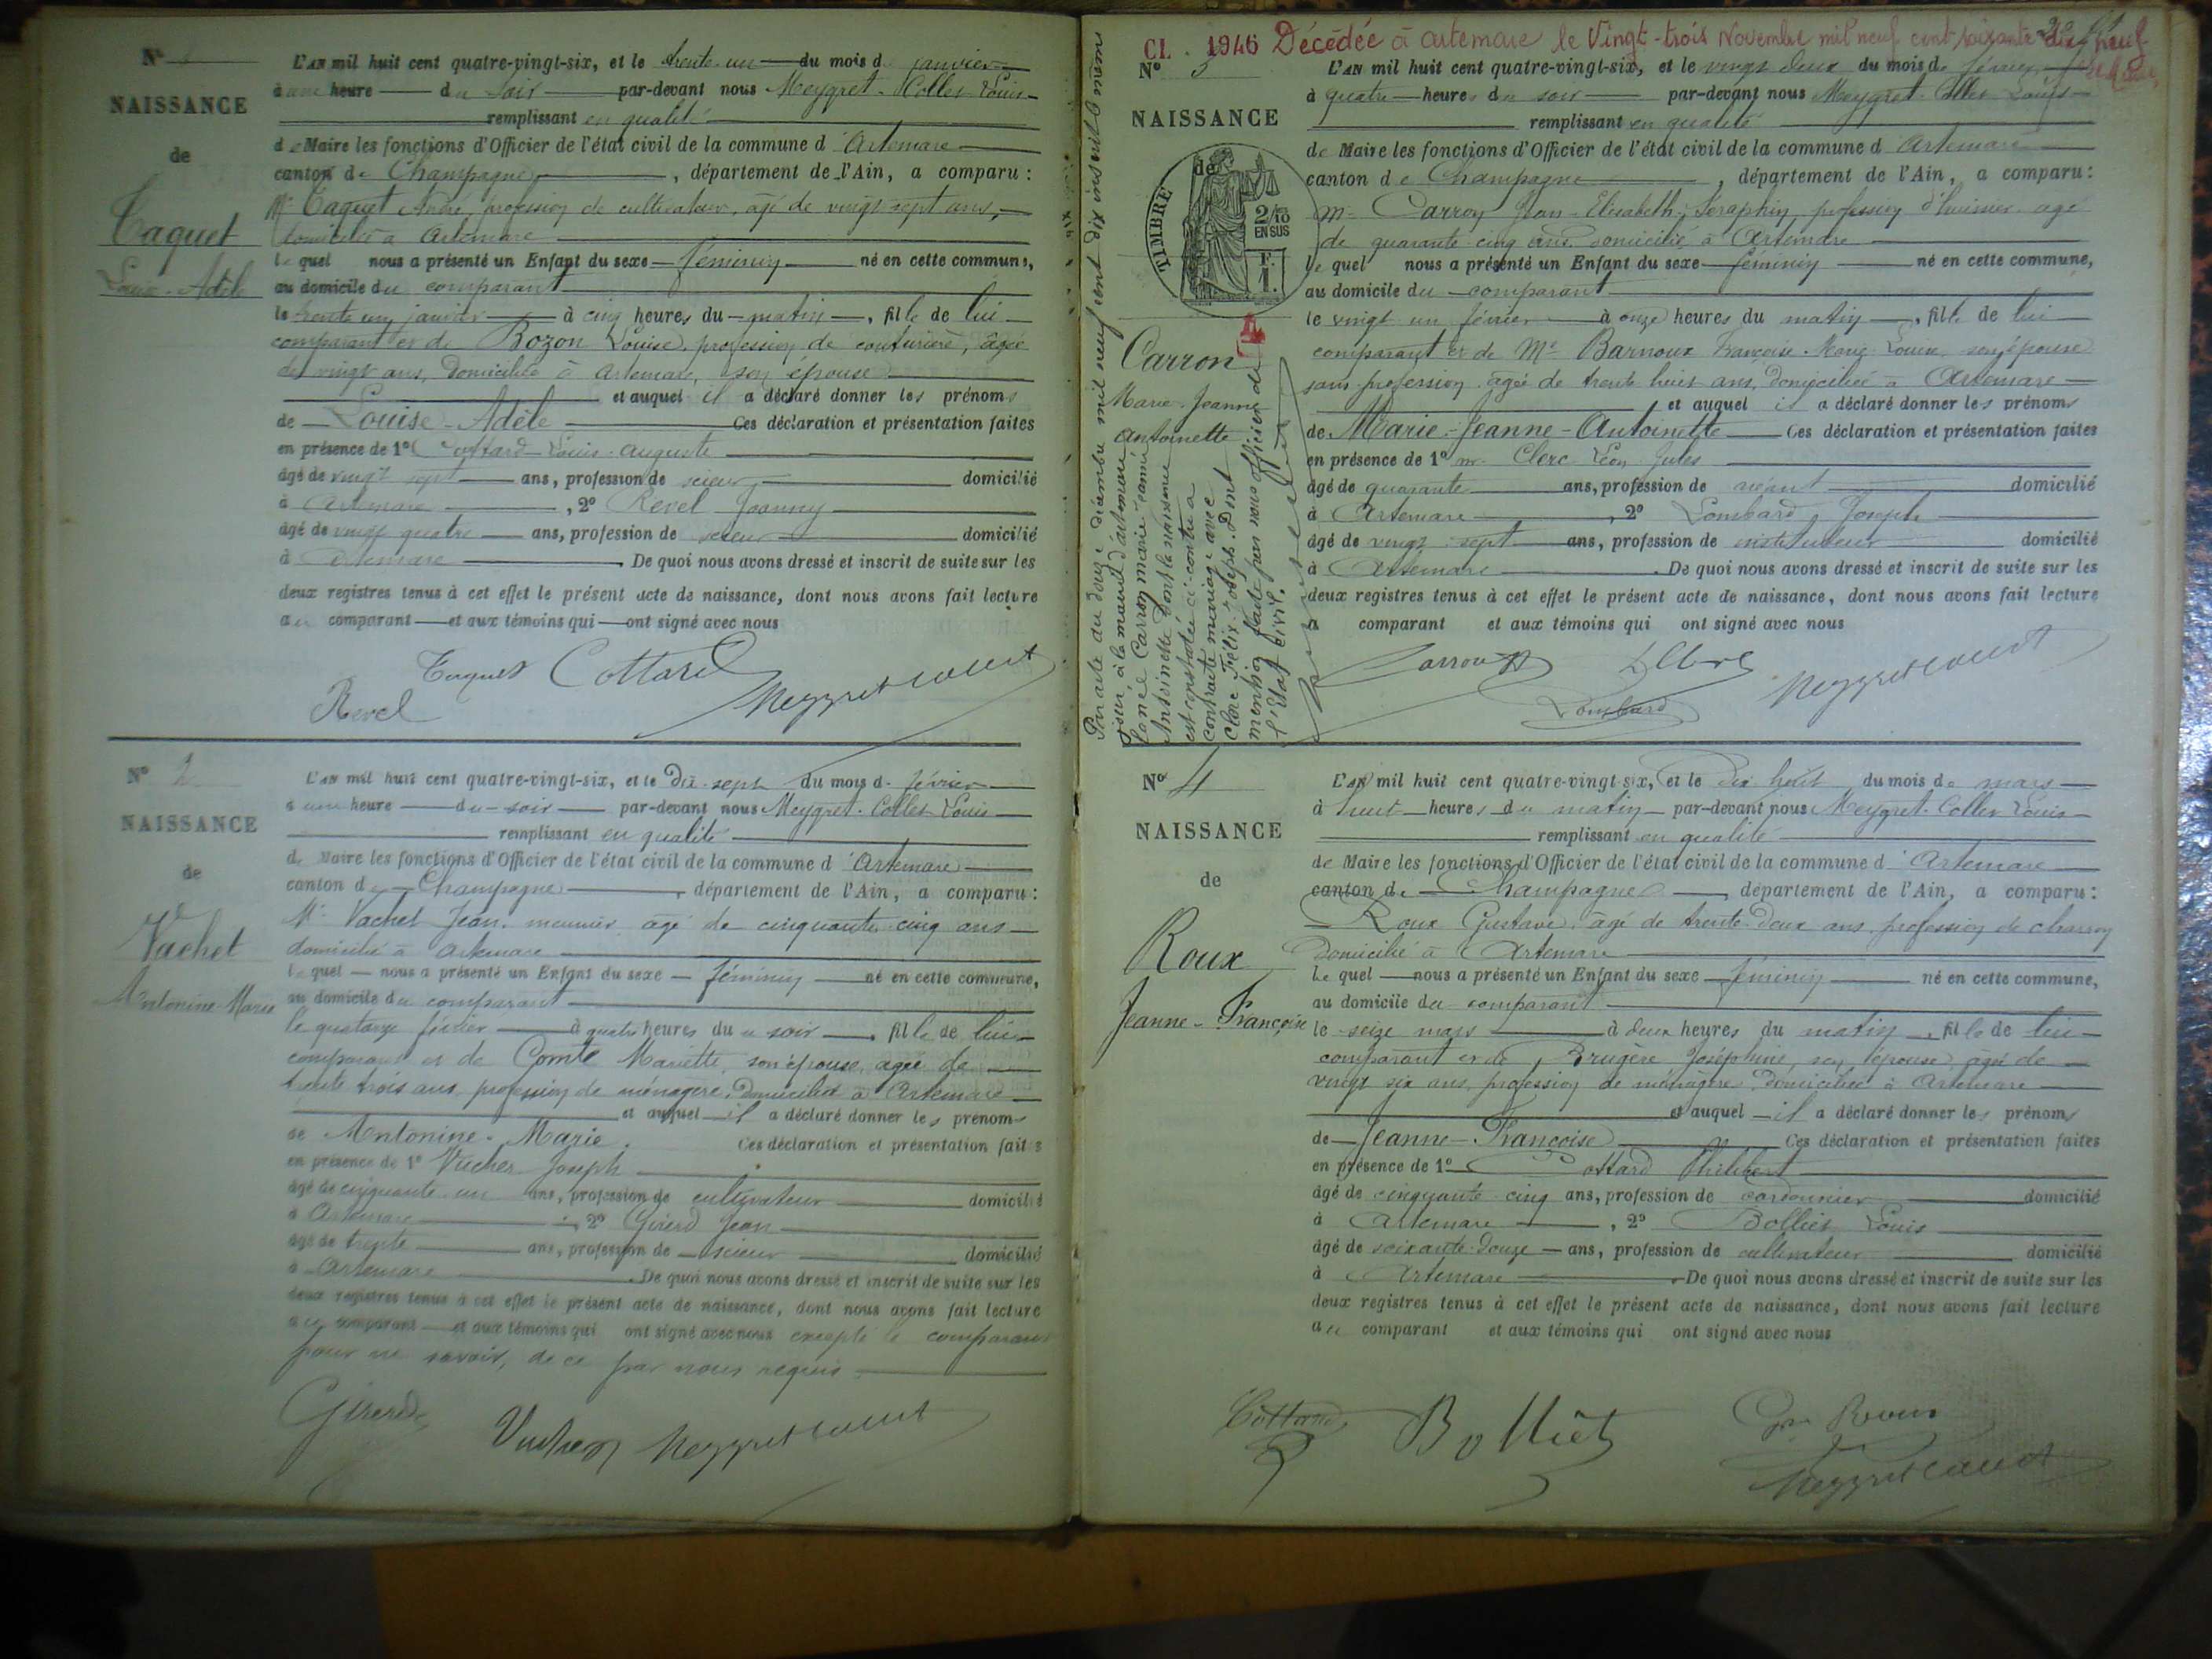 N° 1
NAISSANCE
de
Caquet
Louise-Adèle
L'AN mil huit cent quatre-vingt-six, et le trente-un du mois de janvier
à une heure du soir par-devant nous Meygret-Collet Louis
remplissant en qualité
de Maire les fonctions d'Officier de l'état civil de la commune d'Artemare
canton de Champagne, département de l'Ain, a comparu :
Mr Caquet André, profession de cultivateur, âgé de vingt sept ans,
domicilié à Artemare
lequel nous a présenté un Enfant du sexe féminin né en cette commune,
au domicile du comparant
le trente un janvier à cinq heures du matin, fille de lui
comparant et de Bozon Louise, profession de couturière, âgée
de vingt ans, domiciliée à Artemare, son épouse
et auquel il a déclaré donner les prénoms
de Louise-Adèle Ces déclaration et présentation faites
en présence de 1° Cottard Louis-Auguste
âgé de vingt sept ans, profession de scieur domicilié
à Artemare, 2° Revel Joanny
âgé de vingt quatre ans, profession de scieur domicilié
à Artemare. De quoi nous avons dressé et inscrit de suite sur les
deux registres tenus à cet effet le présent acte de naissance, dont nous avons fait lecture
au comparant et aux témoins qui ont signé avec nous
Caquet Cottard
Revel Meygretcollet
N° 2
NAISSANCE
de
Vachet
Antonine-Marie
L'AN mil huit cent quatre-vingt-six, et le dix-sept du mois de février
à une heure du soir par-devant nous Meygret-Collet Louis
remplissant en qualité
de Maire les fonctions d'Officier de l'état civil de la commune d'Artemare
canton de Champagne, département de l'Ain, a comparu :
Mr Vachet Jean, meunier, âgé de cinquante cinq ans
domicilié à Artemare
lequel nous a présenté un Enfant du sexe féminin né en cette commune,
au domicile du comparant
le quatorze février à quatre heures du soir, fille de lui
comparant et de Comte Mariette, son épouse, âgée de
trente trois ans, profession de ménagère, domiciliée à Artemare
et auquel il a déclaré donner les prénoms
de Antonine-Marie. Ces déclaration et présentation faites
en présence de 1° Vucher Joseph
âgé de cinquante un ans, profession de cultivateur domicilié
à Artemare, 2° Girerd Jean
âgé de trente ans, profession de scieur domicilié
à Artemare. De quoi nous avons dressé et inscrit de suite sur les
deux registres tenus à cet effet le présent acte de naissance, dont nous avons fait lecture
au comparant et aux témoins qui ont signé avec nous excepté le comparant
pour ne savoir, de ce par nous requis
Girerd Vucher Meygretcollet
Cl. 1946 Décédée à Artemare le Vingt-trois Novembre mil neuf cent soixante-dix neuf
N° 3
NAISSANCE
de
TIMBRE
2/10
EN SUS
F.
1.
4
Carron
Marie-Jeanne
Antoinette
Par acte du douze décembre mil neuf cent dix inscrit le même
jour à la mairie d'Artemare
la née Carron Marie-Jeanne
Antoinette dont la naissance
est constatée ci-contre a
contracté mariage avec
Clerc Félix-Joseph. Dont
mention faite par nous officier de
l'Etat civil.
L'AN mil huit cent quatre-vingt-six, et le vingt deux du mois de février
à quatre heures du soir par-devant nous Meygret-Collet Louis
remplissant en qualité
de Maire les fonctions d'Officier de l'état civil de la commune d'Artemare
canton de Champagne, département de l'Ain, a comparu :
Mr Carron Jean-Elisabeth-Séraphin, profession d'huissier âgé
de quarante cinq ans domicilié à Artemare
lequel nous a présenté un Enfant du sexe féminin né en cette commune,
au domicile du comparant
le vingt un février à onze heures du matin, fille de lui
comparant et de Me Barnoux Françoise-Marie-Louise, son épouse
sans profession âgée de trente huit ans, domiciliée à Artemare
et auquel il a déclaré donner les prénoms
de Marie-Jeanne-Antoinette Ces déclaration et présentation faites
en présence de 1° Mr Clerc Léon Jules
âgé de quarante ans, profession de domicilié
à Artemare, 2° Lombard Joseph
âgé de vingt sept ans, profession de instituteur domicilié
à Artemare. De quoi nous avons dressé et inscrit de suite sur les
deux registres tenus à cet effet le présent acte de naissance, dont nous avons fait lecture
comparant et aux témoins qui ont signé avec nous
Carron Clerc
Lombard Meygretcollet
N° 4
NAISSANCE
de
Roux
Jeanne-Françoise
L'AN mil huit cent quatre-vingt-six, et le dix huit du mois de mars
à huit heures du matin par-devant nous Meygret-Collet Louis
remplissant en qualité
de Maire les fonctions d'Officier de l'état civil de la commune d'Artemare
canton de Champagne, département de l'Ain, a comparu :
Roux Gustave, âgé de trente-deux ans profession de charron
domicilié à Artemare
Lequel nous a présenté un Enfant du sexe féminin né en cette commune,
au domicile du comparant
le seize mars à deux heures du matin, fille de lui
comparant et de Brugère Joséphine, son épouse, âgée de
vingt six ans, profession de ménagère, domiciliée à Artemare
et auquel il a déclaré donner les prénoms
de Jeanne-Françoise Ces déclaration et présentation faites
en présence de 1° Cottard Philibert
âgé de cinquante cinq ans, profession de cordonnier domicilié
à Artemare, 2° Bolliet Louis
âgé de soixante-douze ans, profession de cultivateur domicilié
à Artemare. De quoi nous avons dressé et inscrit de suite sur les
deux registres tenus à cet effet le présent acte de naissance, dont nous avons fait lecture
au comparant et aux témoins qui ont signé avec nous
Cottard Bolliet Roux
Meygretcollet